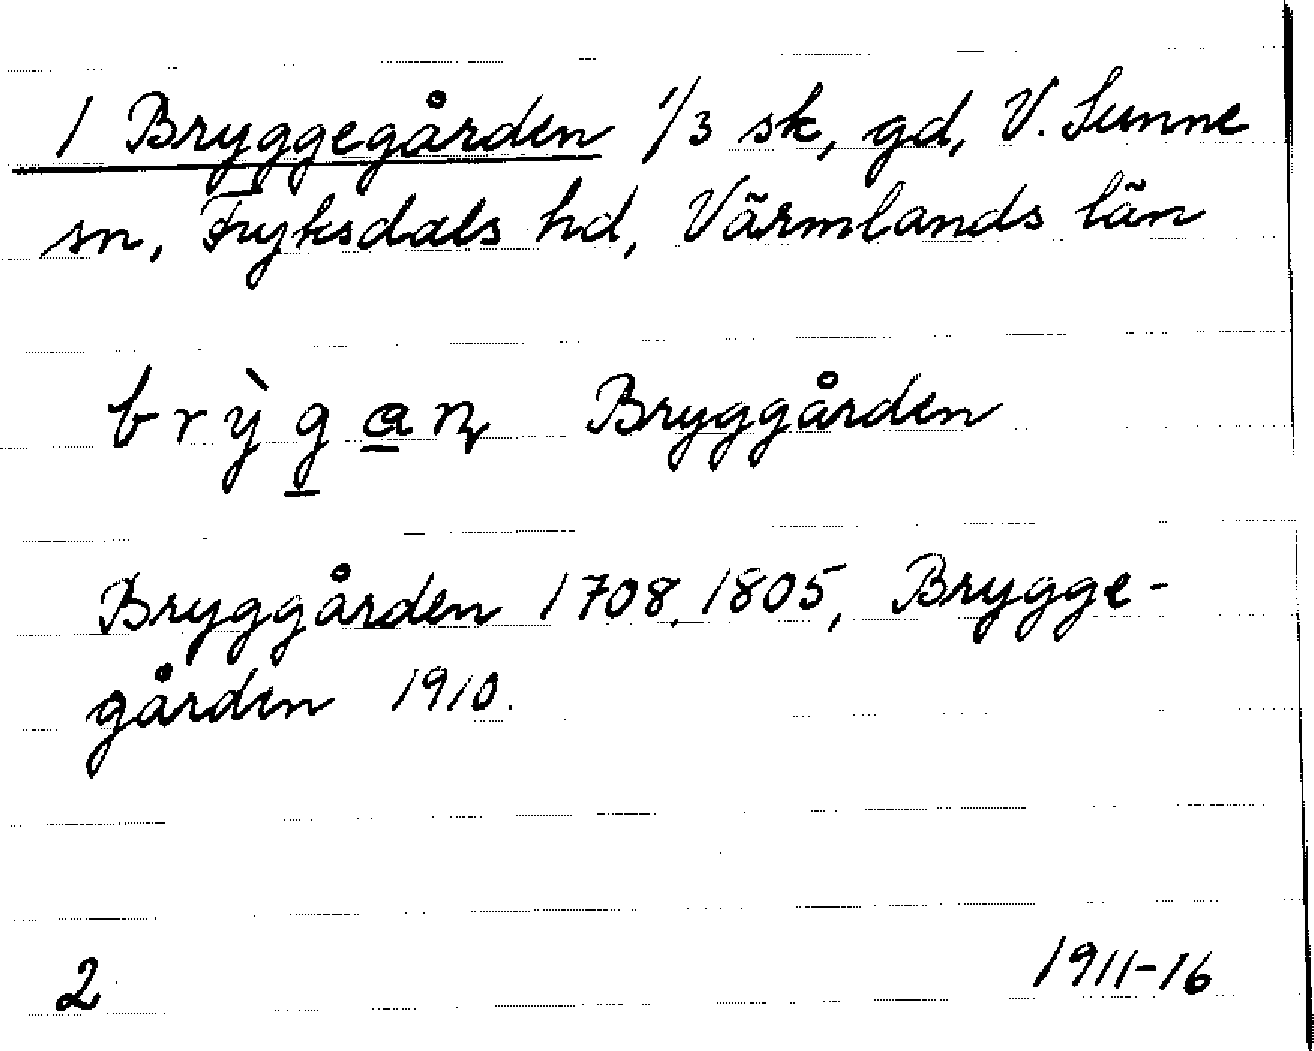 1 Bryggegården 1/3 sk, gd, V. Sunne
sn, Fryksdals hd, Värmlands län
br&#x1EF3;g̱a̱ɳ Bryggården
Bryggården 1708, 1805, Brygge-
gården 1910.
2 1911-16